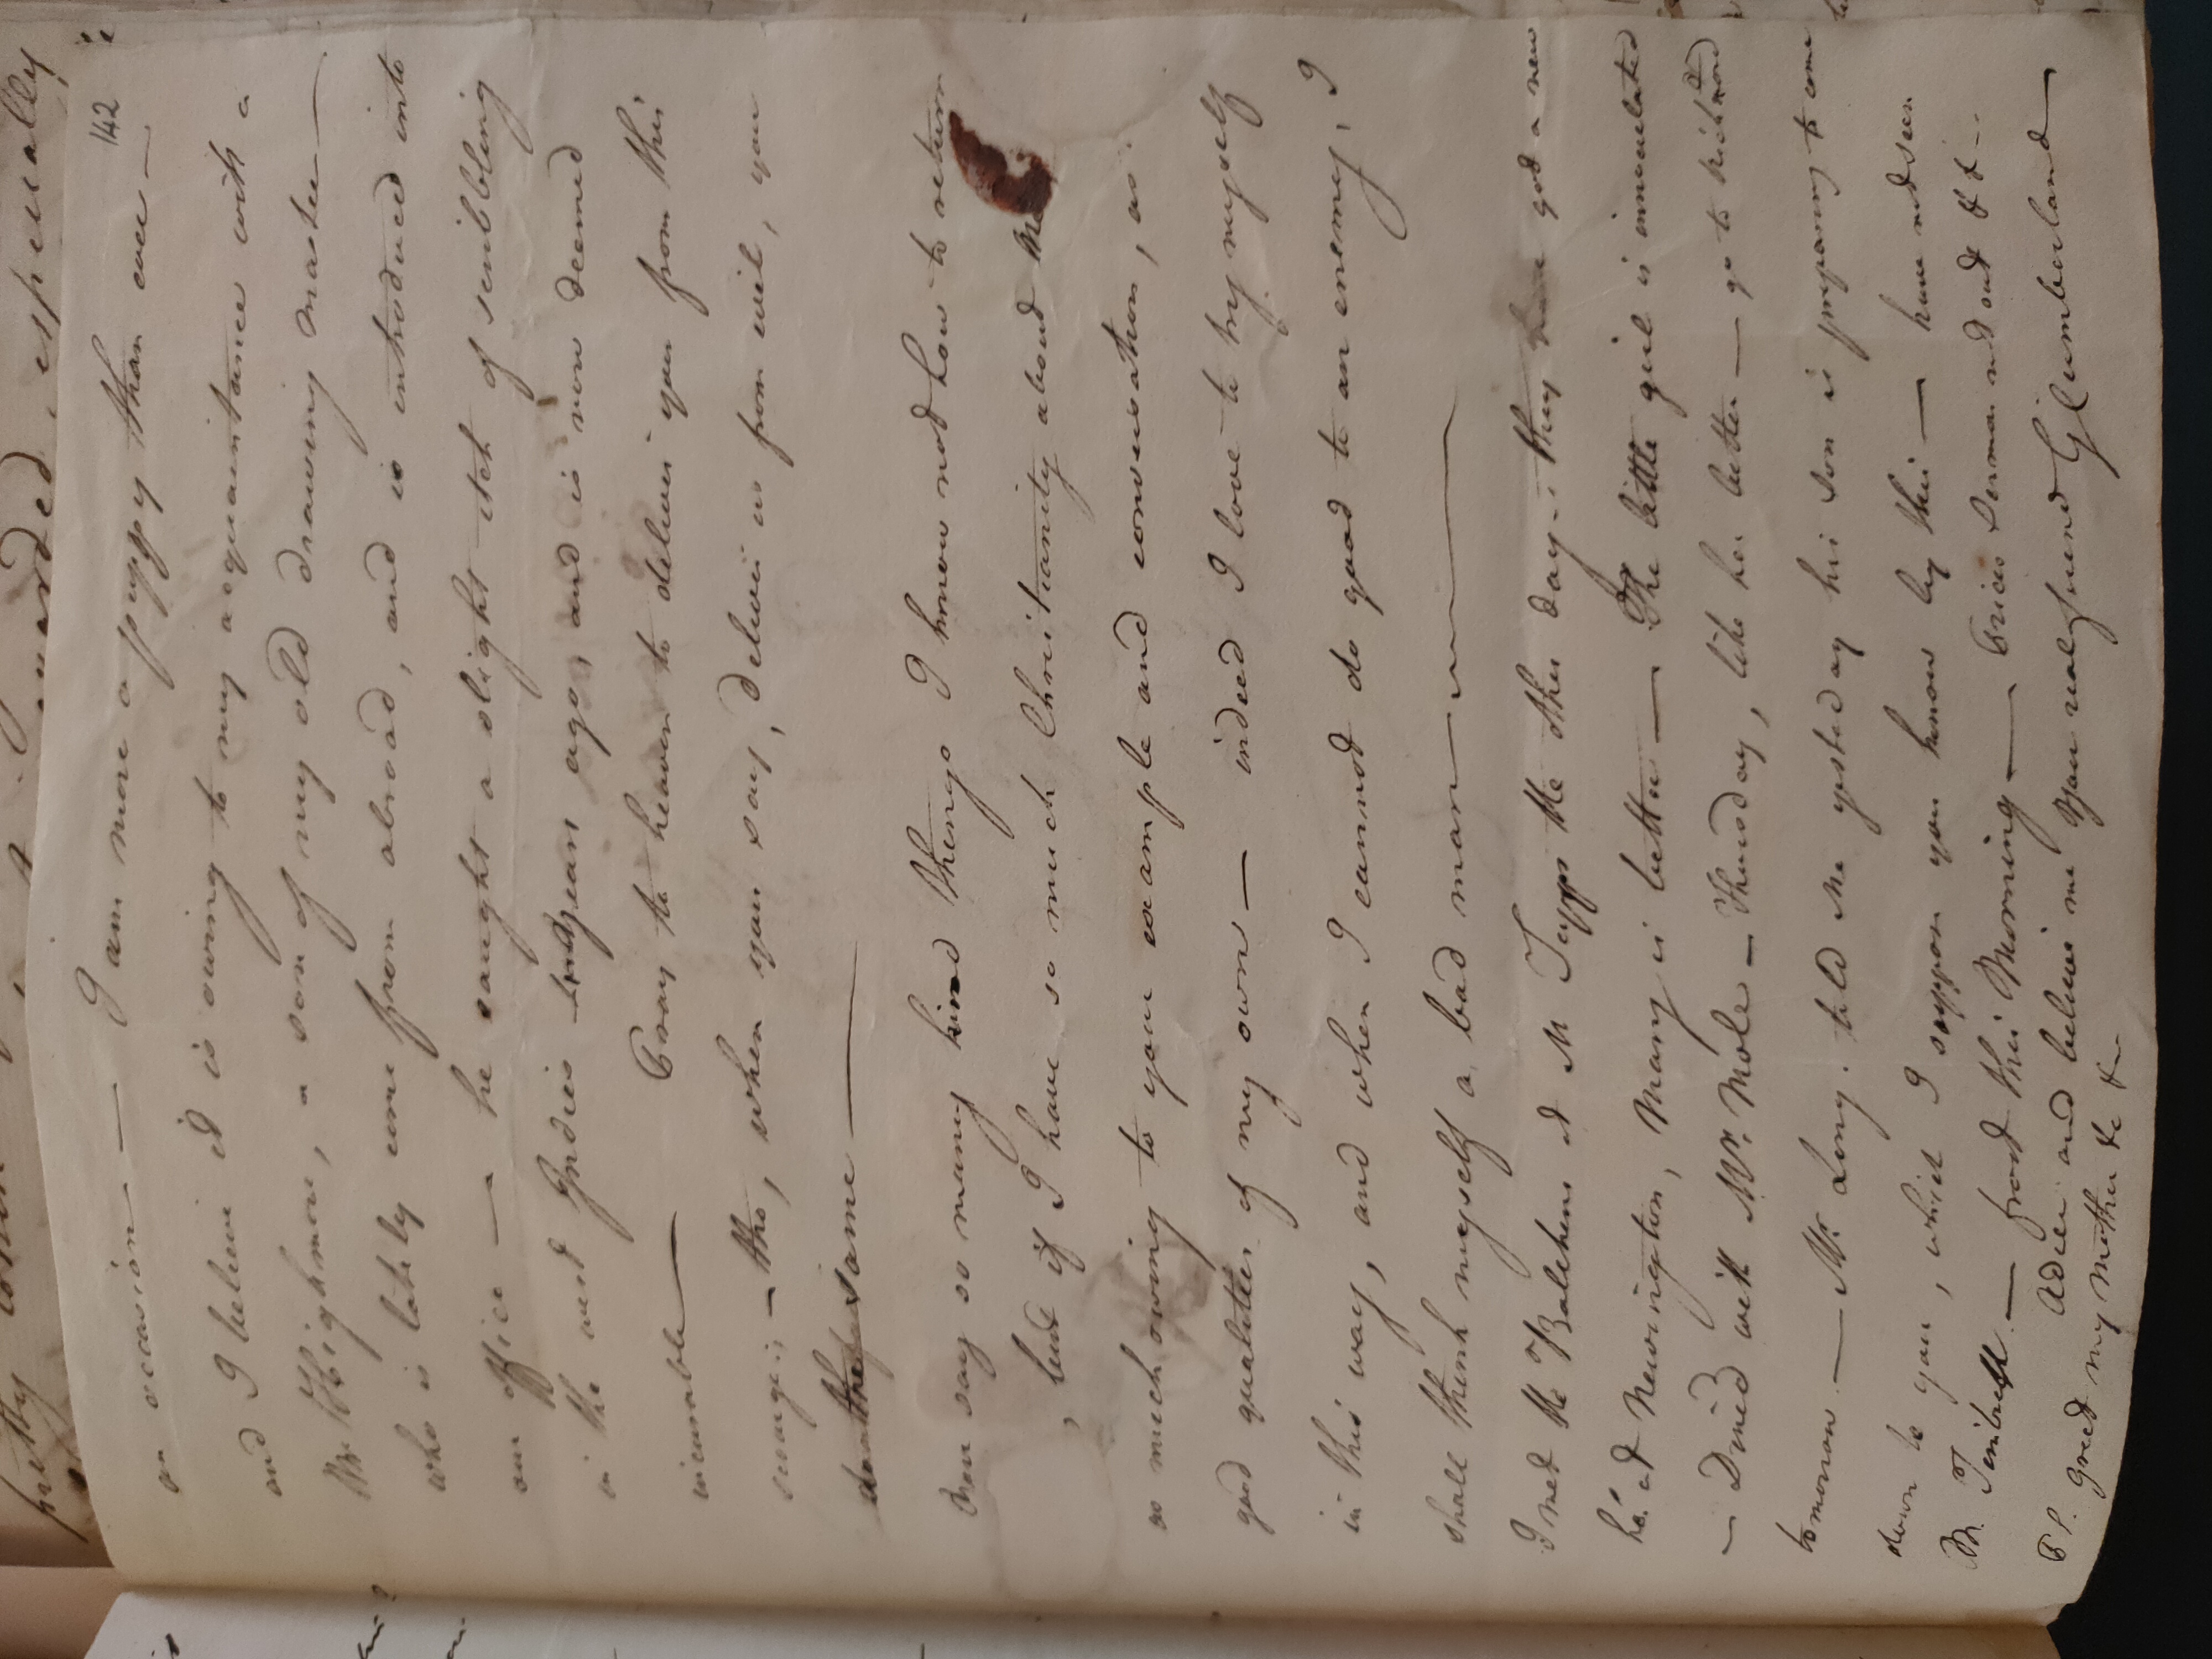 142
on occasion — I am more a puppy than ever —
and I believe it is owing to my acquaintance with a
Mr Highmore, a son of my old drawing master —
who is lately come from abroad, and is introduced into
our office — he caught a slight itch of scribbling
in the west Indies years ago and is now deemed
incurable — Pray to heaven to deliver you from this
scurge; — tho, when you say, deliver us from evil, you
same —
You say so many kind things I know not how to return
, but if I have so much Christianity about me
so much owing to your example and conversation, as
good qualities of my own — indeed I love to try myself
in this way, and when I cannot do good to an enemy, I
shall think myself a bad man —
I met the Balchens at Mr Tupps the other day. they have got a new
ho. at Newington, Mary is better — The little girl is innoculated
— Dined with Mr. Mole — Thursday, like her better — go to Richmond
tomorrow. — Mr Long. told me yesterday his son is preparing to come
down to you, which I suppose you know by this — have not seen
M. — frost this Morning — Prices Sermon not out &c —
Adieu and believe me Your real friend G Cumberland
P S. Greet my mother &c &c